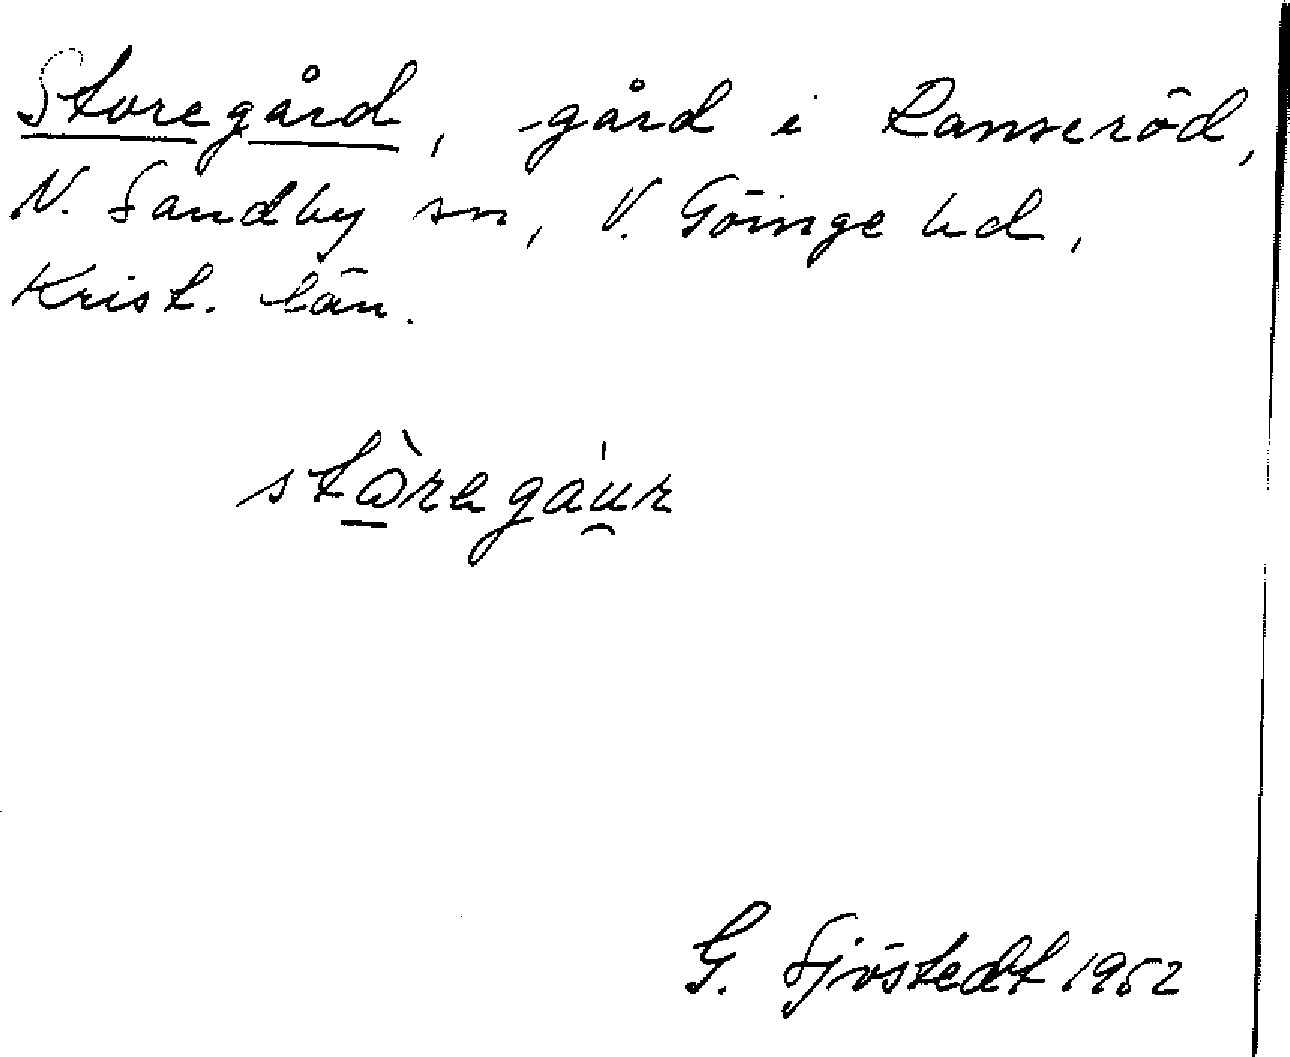 Storegård, gård i Ranseröd,
N. Sandby sn, V. Göinge hd,
Krist. län.
G. Sjöstedt 1952